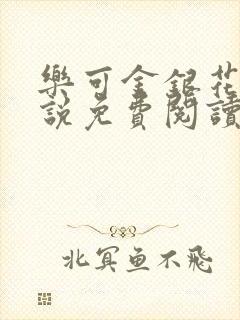 樂可金銀花
說免費閱讀
北冥鱼不飛